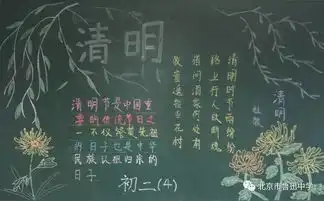 清明
清明节是中国重
要的传统节日之
一 不仅祭奠先祖
的日子也是中华
民族认祖归宗的
日子
初二(4)
清明
杜牧
清明时节雨纷纷
路上行人欲断魂
借问酒家何处有
牧童遥指杏花村
北京市鲁迅中学